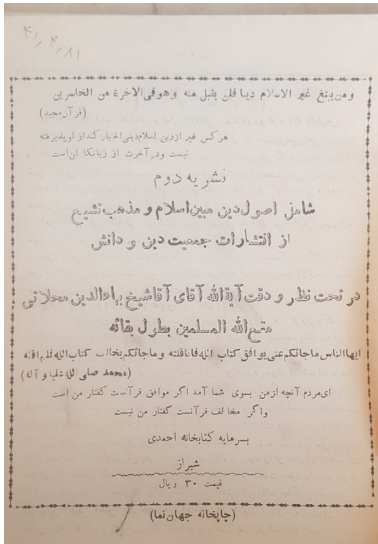 ۴۱/۴/۸۱
ومن یبتغ غیر الاسلام دینا فلن یقبل منه وهو فی الاخرة من الخاسرین
(قرآن مجید)
هر کس غیر از دین اسلام دینی اختیار کند از او پذیرفته
نیست و در آخرت از زیانکا ان است .
نشریه دوم
شامل اصول دین مبین اسلام و مذهب تشیع
از انتشارات جمعیت دین و دانش
در تحت نظر و دقت آیةالله آقای آقا شیخ بهاءالدین محلاتی
متع الله المسلمین بطول بقائه
ایها الناس ما جائکم عنی یوافق کتاب الله فانا قلته و ما جائکم یخالف کتاب الله فلم اقله
(محمد صلی الله علیه و آله)
ای مردم آنچه از من بسوی شما آمد اگر موافق قرآنست گفتار من است
و اگر مخالف قرآنست گفتار من نیست
بسرمایه کتابخانه احمدی
شیراز
قیمت ۳۰ ریال
(چاپخانه جهان نما)